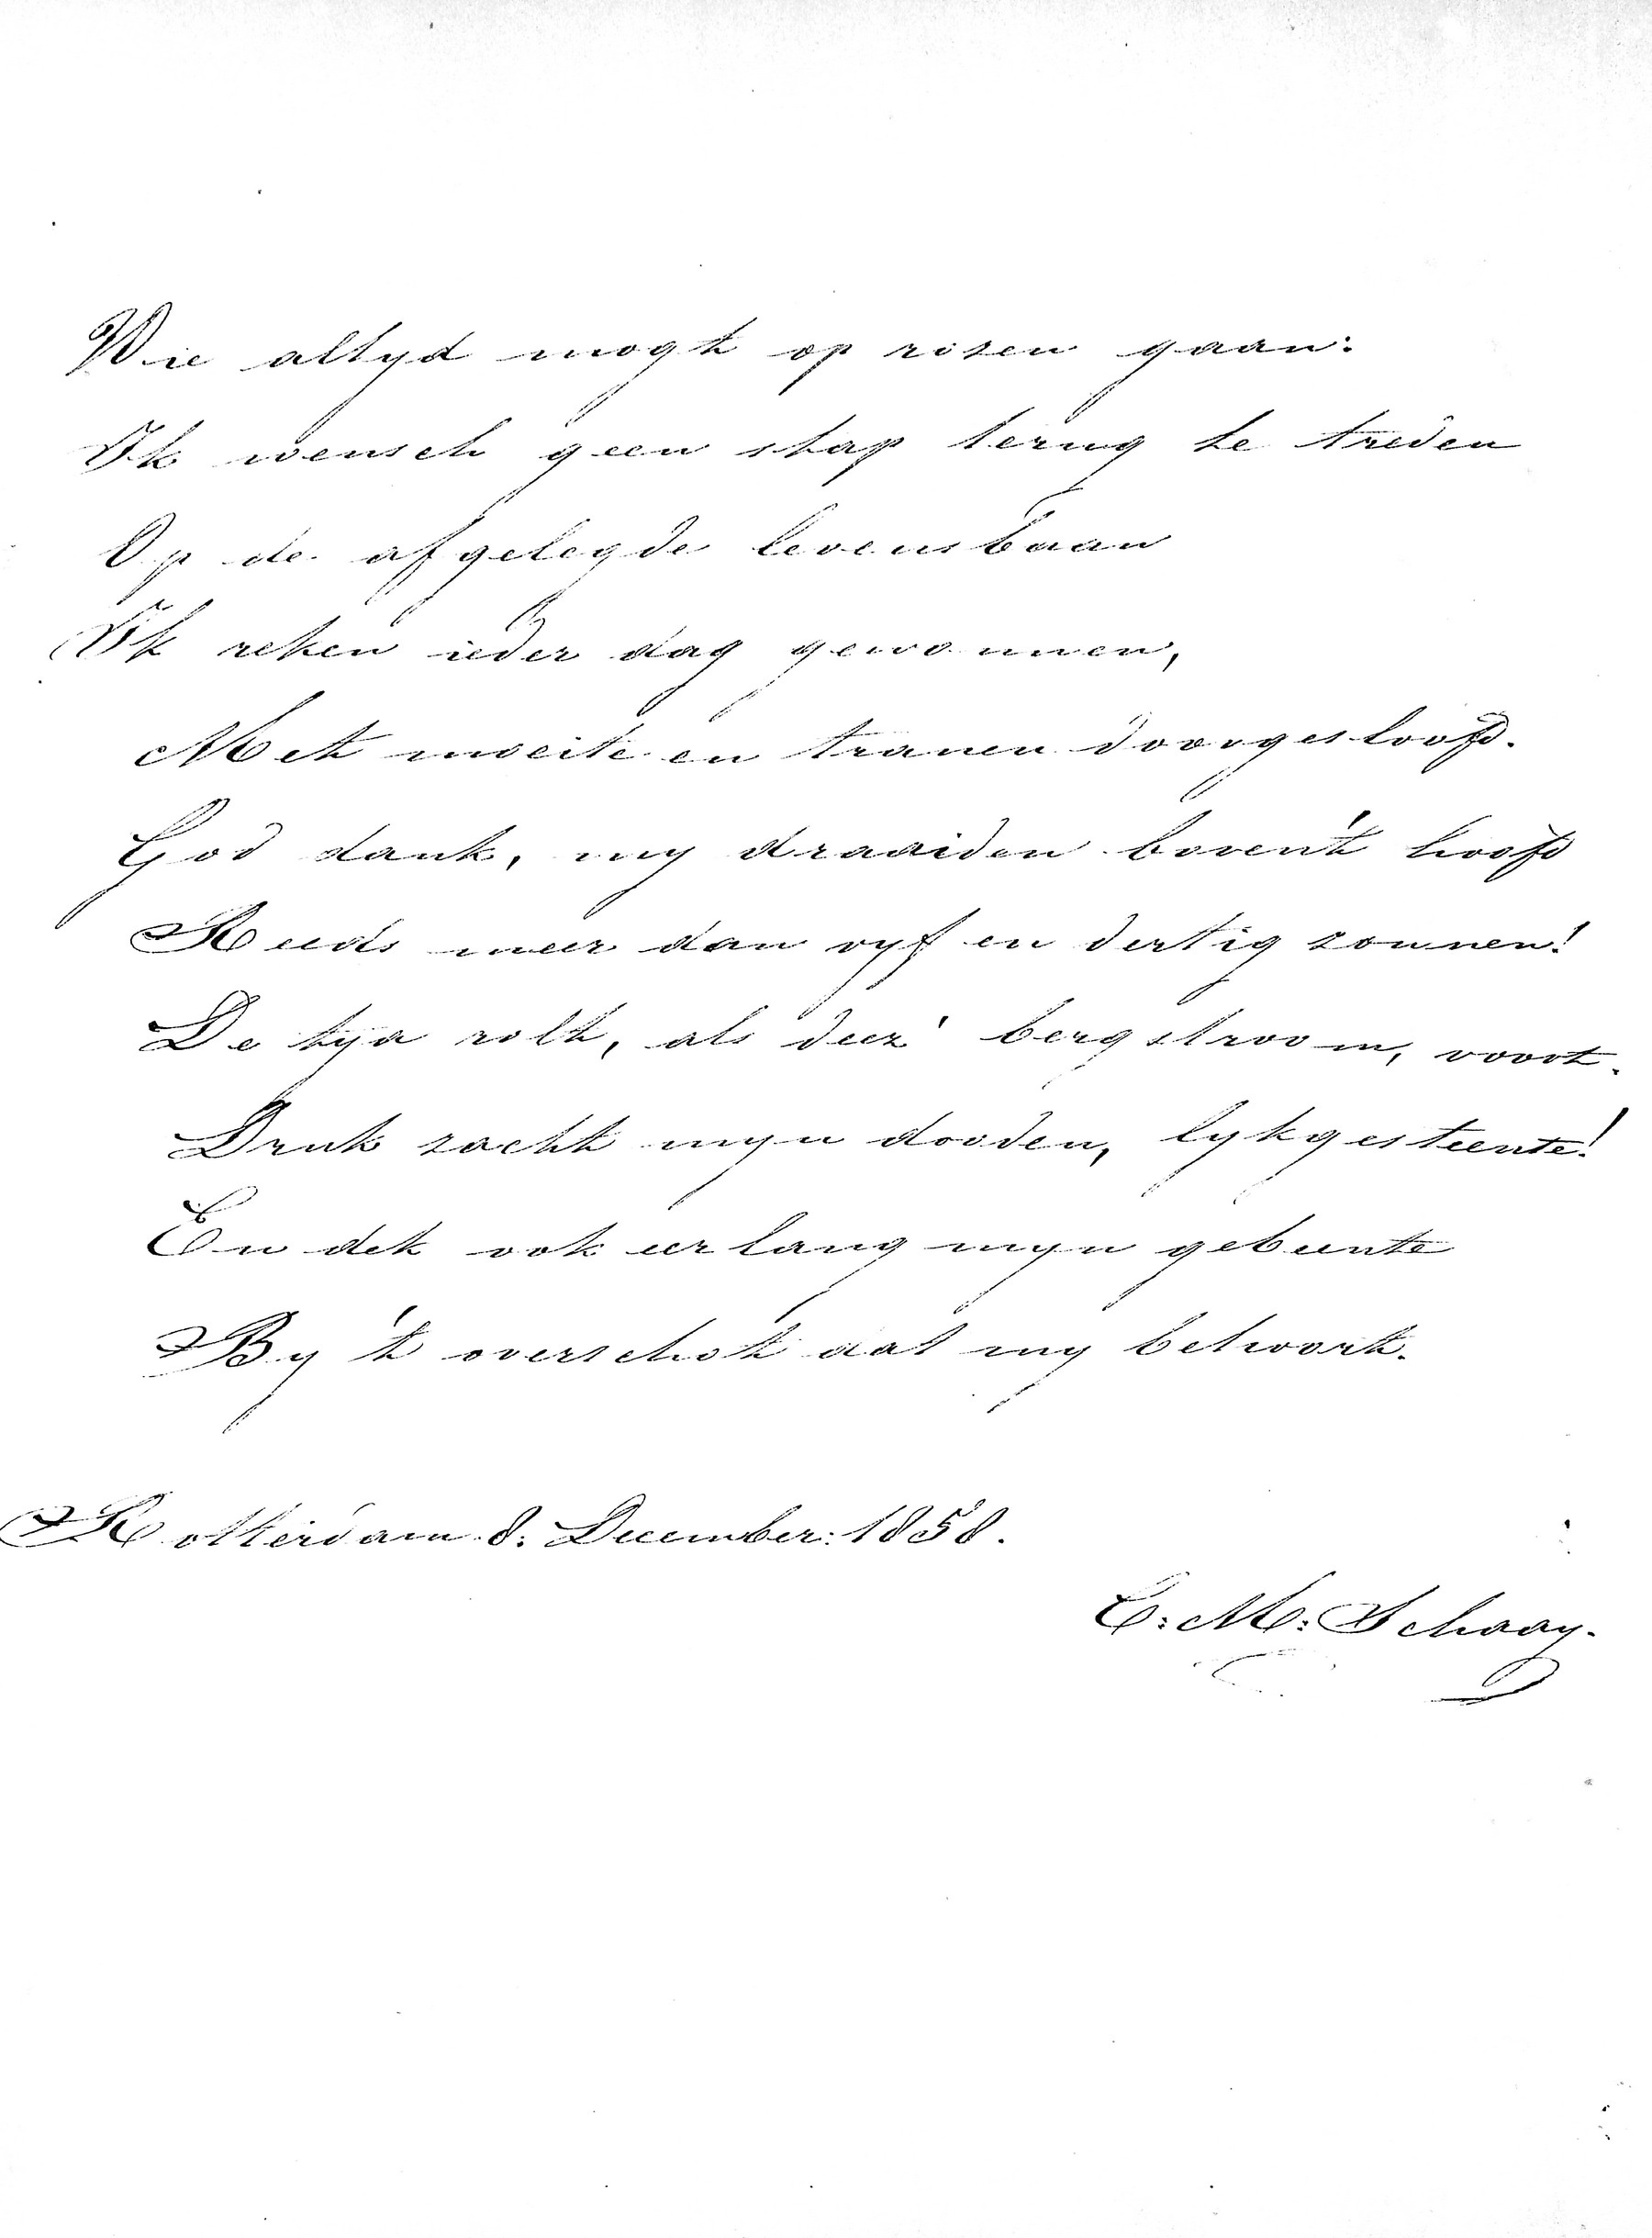 Wie altyd mogt op rosen gaan:
Ik wensch geen stap terug te treden
Op de afgelegde levensbaan
Ik reken ieder dag gewonnen,
Met moeite en tranen doorgesloofd.
God dank, my draaiden boven 't hoofd
Reeds meer dan vyf en dertig zonnen!
De tyd rolt, als deez' bergstroom, voort.
Druk zacht myn dooden, lykgesteente!
En dek ook eerlang myn gebeente
By 't overschot dat my behoort.
Rotterdam 8: December: 1858.
C: M: Schaay.